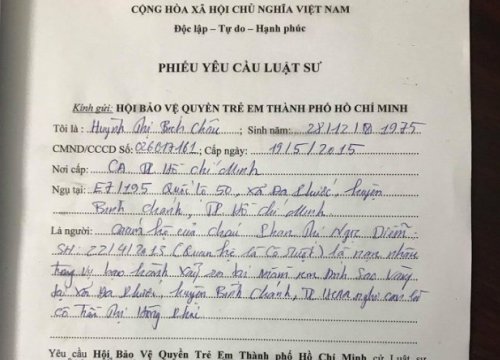 CỘNG HÒA XÃ HỘI CHỦ NGHĨA VIỆT NAM
Độc lập – Tự do – Hạnh phúc
PHIẾU YÊU CẦU LUẬT SƯ
Kính gửi: HỘI BẢO VỆ QUYỀN TRẺ EM THÀNH PHỐ HỒ CHÍ MINH
Tôi là: Huỳnh Thị Bích Châu; Sinh năm: 28/12/1975
CMND/CCCD Số: 026017161; Cấp ngày: 19/5/2015
Nơi cấp: CA TP Hồ Chí Minh
Ngụ tại: E7/195 Quốc lộ 50, xã Đa Phước, huyện
Bình Chánh, TP Hồ Chí Minh
Là người: quan hệ của cháu Phan Thị Ngọc Diễm
SN: 22/4/2013 (Quan hệ là Cô ruột) là nạn nhân
trong vụ bạo hành xảy ra tại mầm non Ánh Sao Vàng
tại xã Đa Phước, huyện Bình Chánh, TP HCM
cô Trần Thị
Yêu cầu Hội Bảo Vệ Quyền Trẻ Em Thành phố Hồ Chí Minh cử Luật sư